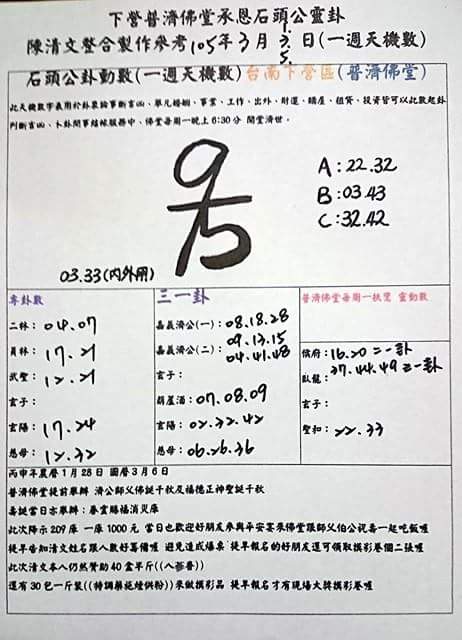 下營普濟佛堂承恩石頭公靈卦
陳清文整合製作參考105年3月1.3.5.日(一週天機數)
石頭公卦動數(一週天機數)台南下營區(普濟佛堂)
此天機數字義用於卦象論事斷吉凶、舉凡婚姻、事業、工作、出外、財運、購產、租賃、投資皆可以此數起卦
判斷吉凶、卜卦問事結緣服務中、佛堂每周一晚上6:30分 開堂濟世.
A:22.32
B:03.43
C:32.42
03.33(內外用)
專卦數
二林:04.07
員林:17.21
武聖:12.21
玄子:
玄陽:17.24
慈母:12.32
三一卦
嘉義濟公(一):08.18.28
嘉義濟公(二):09.13.15
04.41.48
玄子:
葫蘆酒:07.08.09
玄陽:02.32.42
慈母:06.26.36
普濟佛堂每周一扶鸞 靈動數
侯府:16.20二一卦
臥龍:37.44.49三一卦
玄子:
聖和:22.33
丙申年農曆1月28日 國曆3月6日
普濟佛堂提前舉辦 濟公師父佛誕千秋及福德正神聖誕千秋
壽誕當日亦舉辦:發雲賜福消災庫
此次降示209庫 一庫1000元 當日也歡迎好朋友參與平安宴來佛堂跟師父伯公祝壽一起吃飯喔
提早告知清文姓名跟人數好籌備喔 避免造成爆桌 提早報名的好朋友還可領取摸彩卷個二張喔
此次清文本人仍然贊助40盒半斤((八蔘養))
還有30包一斤裝((特調藥施煙供粉))來做摸彩品 提早報名才有現場大獎摸彩卷喔